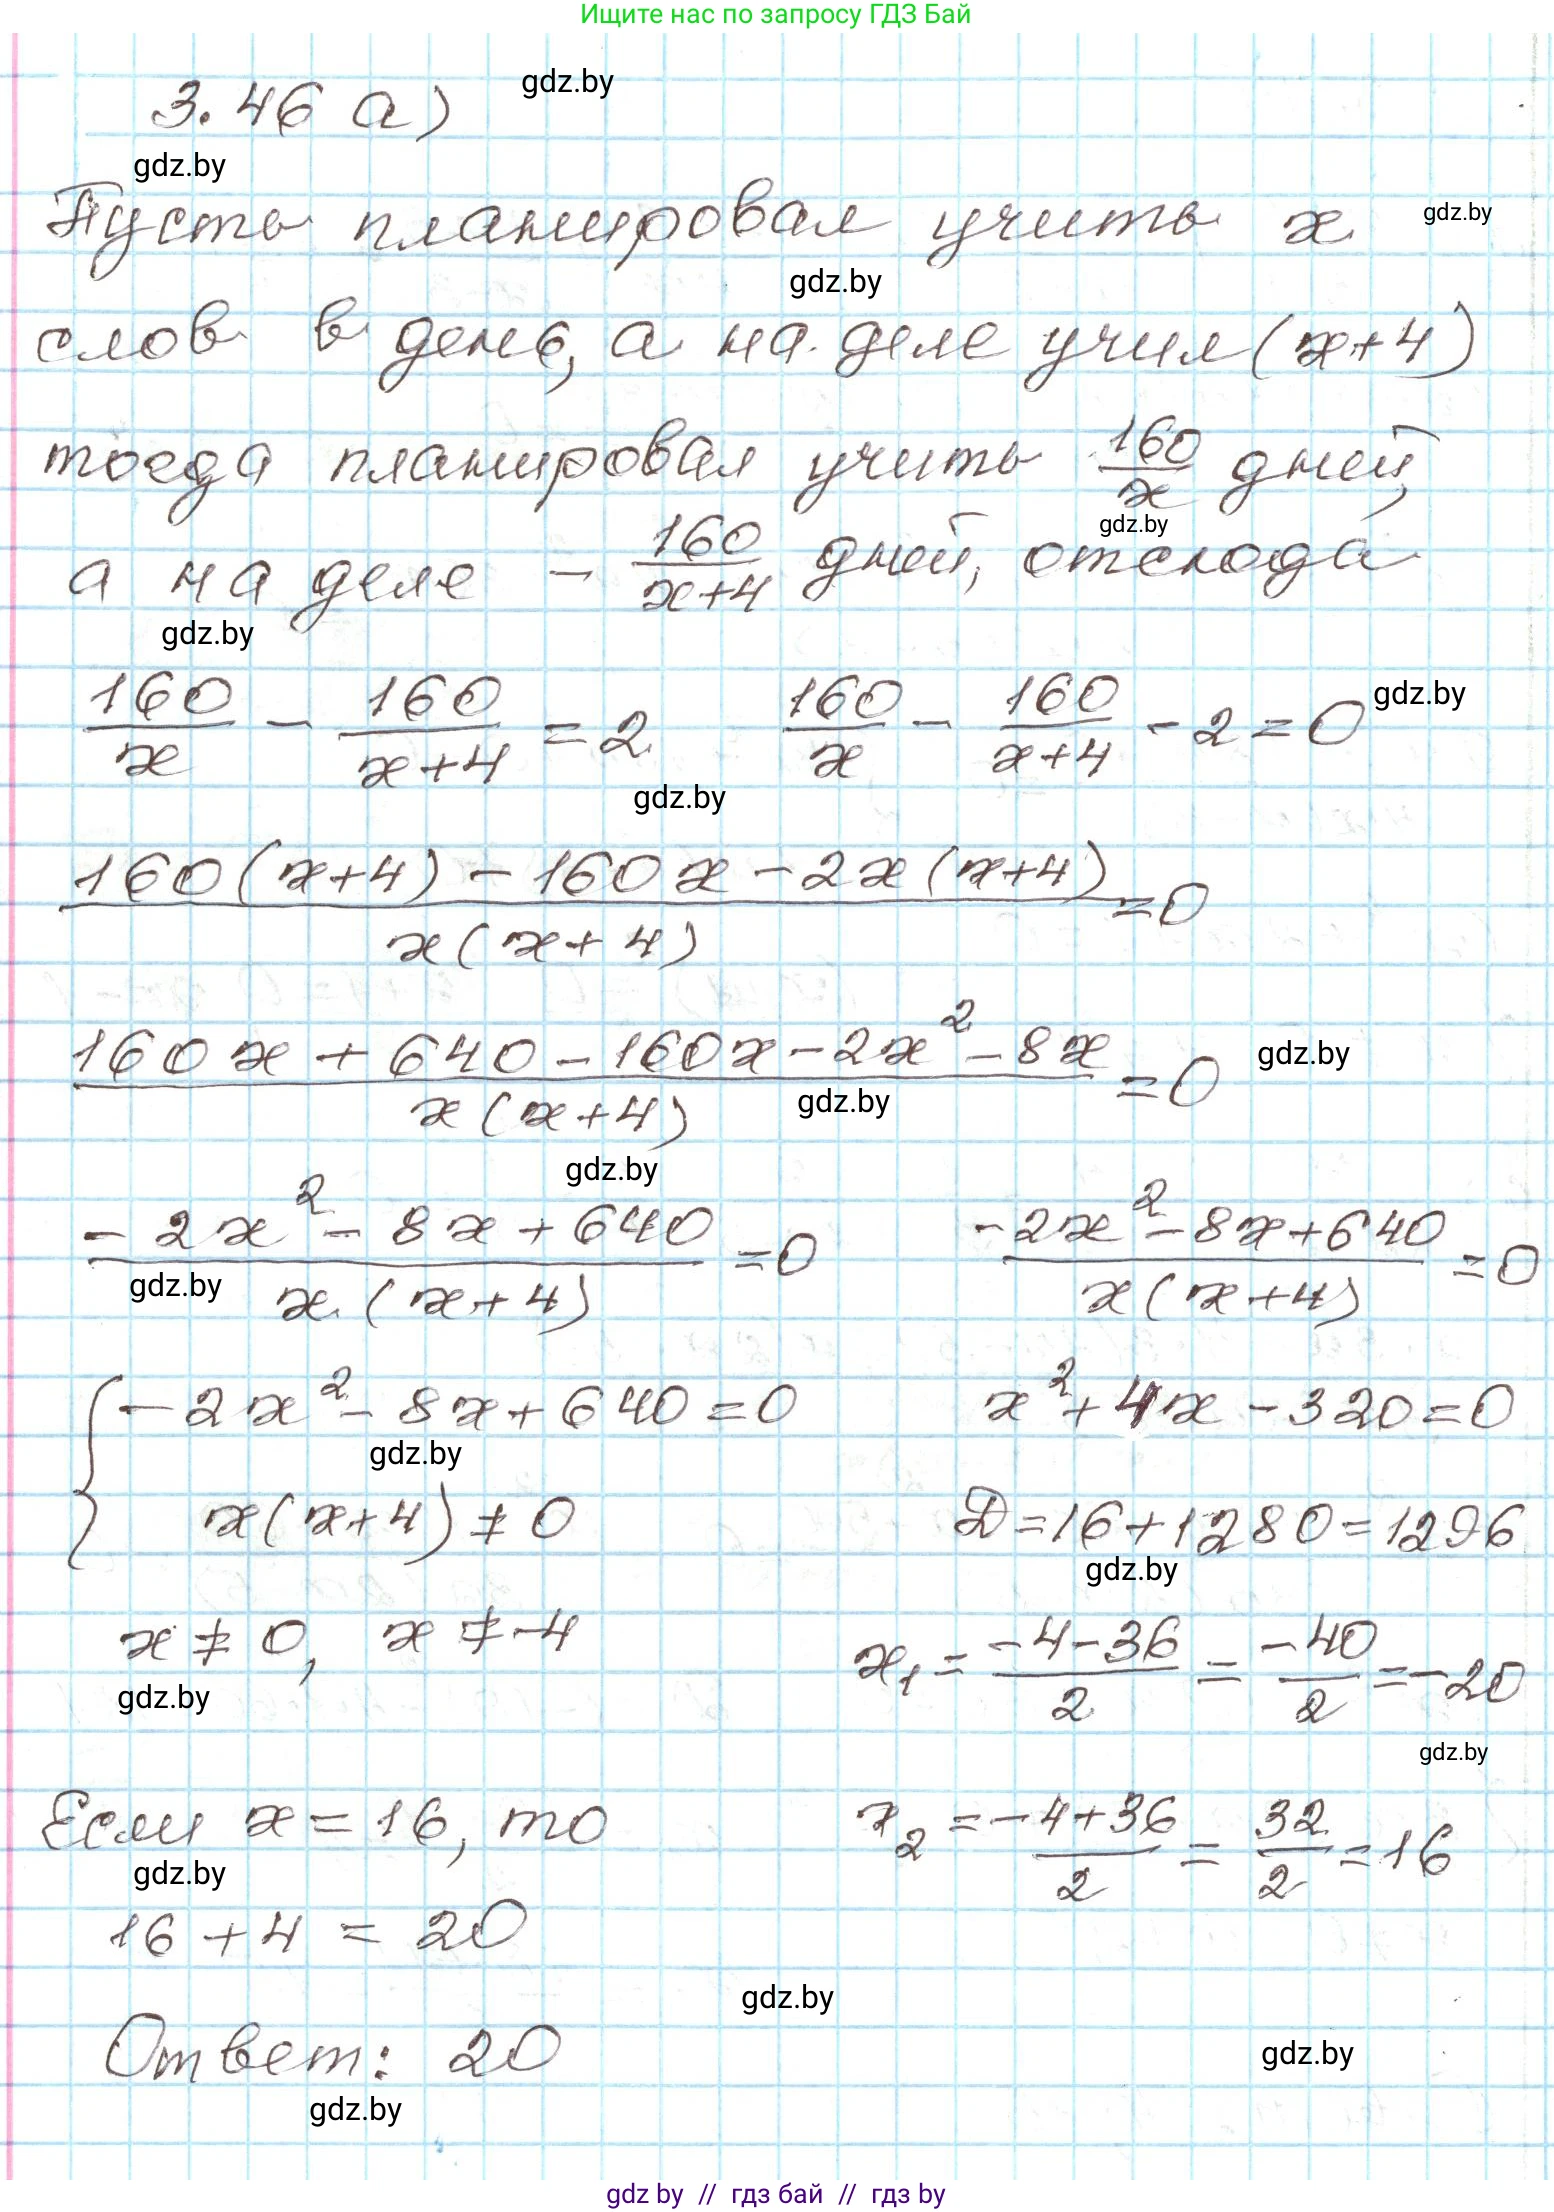 Ищите нас по запросу ГДЗ Бай
3.46 а)
gdz.by
gdz.by
Пусть планировал учить x
gdz.by
gdz.by
слов в день, а на деле учил (x+4)
тогда планировал учить 160/x дней,
gdz.by
а на деле - 160/(x+4) дней, отсюда
gdz.by
160/x - 160/(x+4) = 2   160/x - 160/(x+4) - 2 = 0
gdz.by
gdz.by
(160(x+4) - 160x - 2x(x+4))/(x(x+4)) = 0
(160x + 640 - 160x - 2x² - 8x)/(x(x+4)) = 0
gdz.by
gdz.by
gdz.by
(-2x² - 8x + 640)/(x(x+4)) = 0   (-2x² - 8x + 640)/(x(x+4)) = 0
gdz.by
{ -2x² - 8x + 640 = 0   x² + 4x - 320 = 0
gdz.by
x(x+4) ≠ 0   D = 16 + 1280 = 1296
gdz.by
x ≠ 0, x ≠ -4   x₁ = (-4-36)/2 = -40/2 = -20
gdz.by
gdz.by
Если x = 16, то   x₂ = (-4+36)/2 = 32/2 = 16
gdz.by
16 + 4 = 20
gdz.by
Ответ: 20
gdz.by
gdz.by
gdz by // гдз бай // гдз by